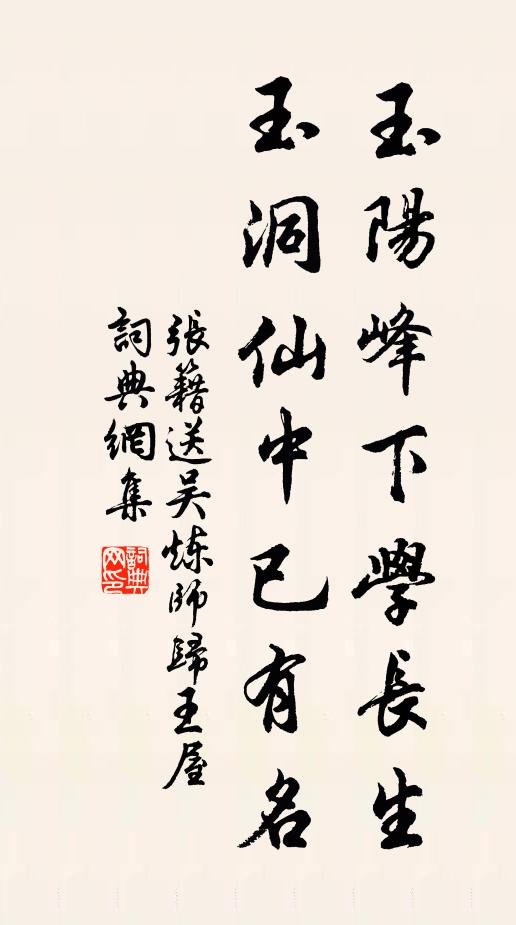 玉陽峰下學長生
玉洞仙中已有名
張籍送吴炼師歸王屋
詞典網集
詞典网印